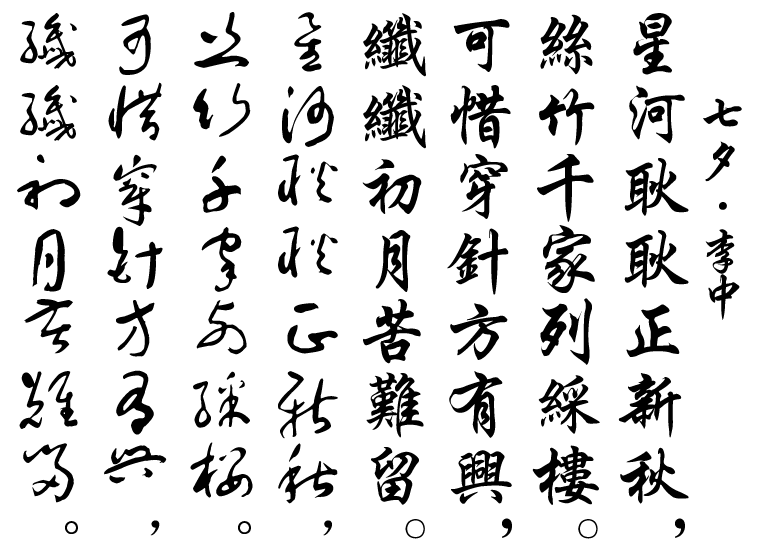 七夕·李中
星河耿耿正新秋，
絲竹千家列綵樓。
可惜穿針方有興，
纖纖初月苦難留。
星河耿耿正新秋，
絲竹千家列綵樓。
可惜穿針方有興，
纖纖初月苦難留。